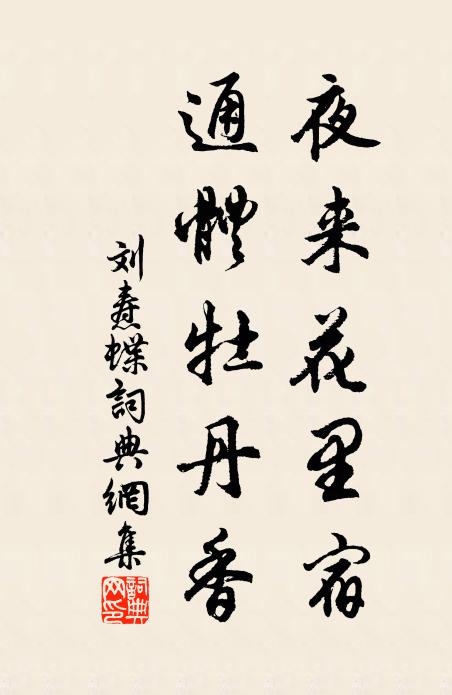 夜来花里宿
通體牡丹香
刘焘蝶詞典網集
詞典
网印